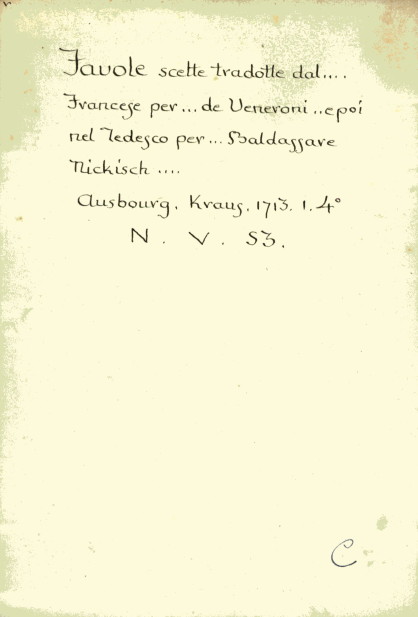 Favole scette tradotte dal....
Francese per... de Veneroni ..e poi
nel Tedesco per... Baldassare
Nickisch ....
Ausbourg. Kraus. 1713. 1. 4°
N . V . 53.
C